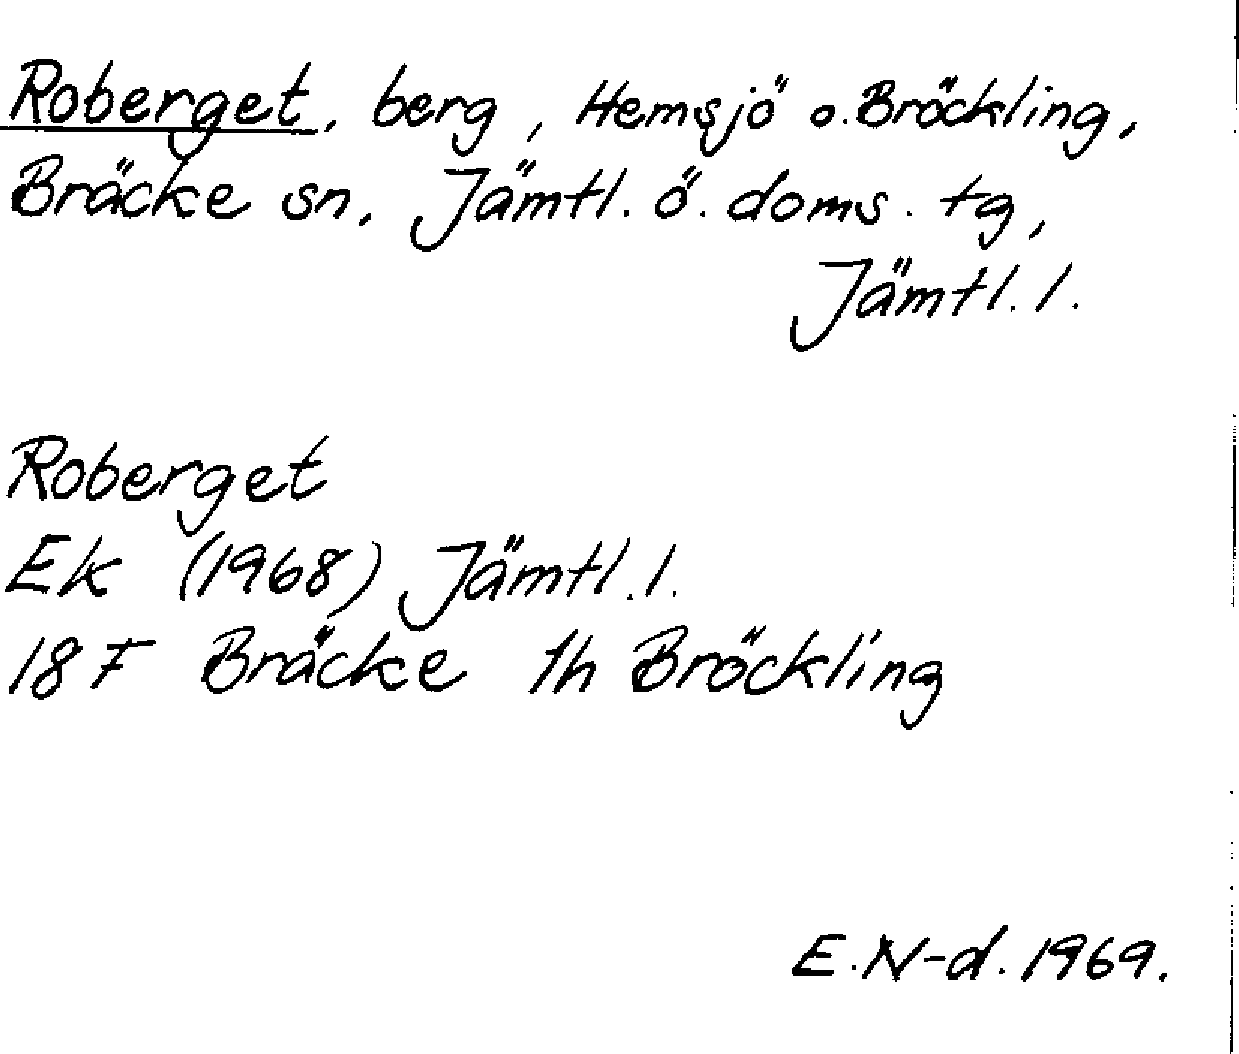 Roberget, berg, Hemsjö o. Bröckling,
Bräcke sn, Jämtl. ö. doms. tg,
Jämtl. l.
Roberget
Ek (1968) Jämtl. l.
18F Bräcke 1h Bröckling
E. N-d. 1969.